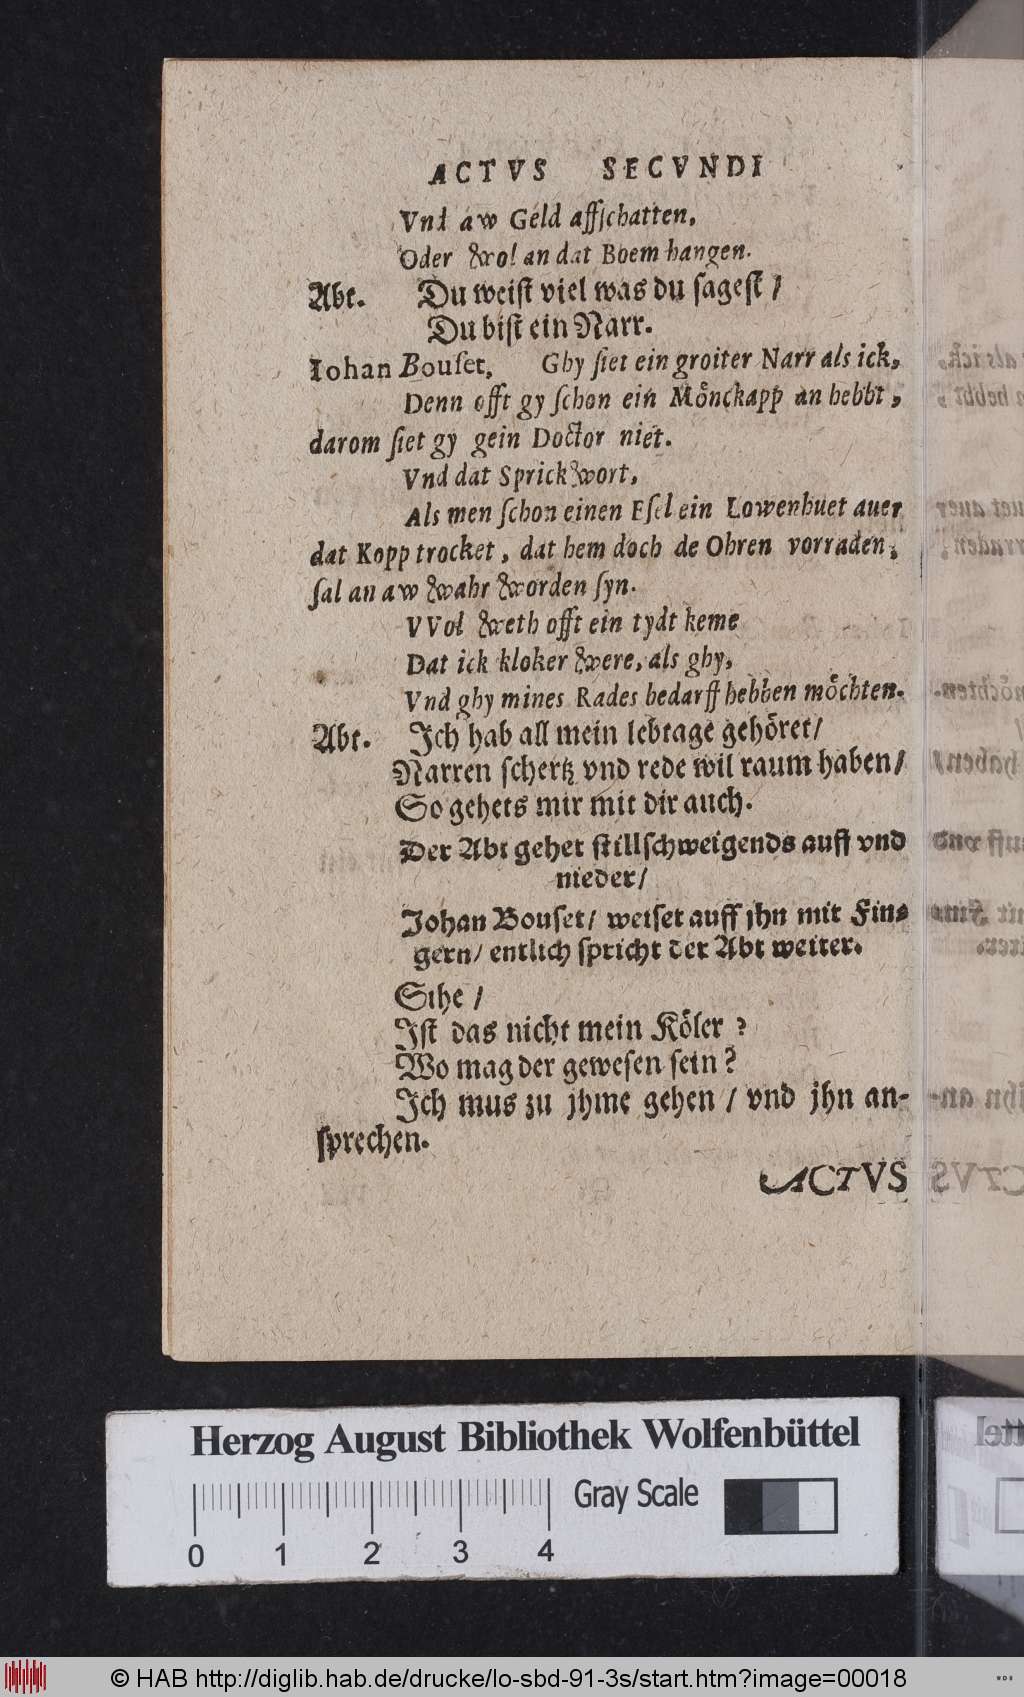 ACTVS SECVNDI
Vnd aw Geld affschatten,
Oder wol an dat Boem hangen.
Abt. Du weist viel was du sagest /
Du bist ein Narr.
Iohan Bouset. Ghy siet ein groiter Narr als ick,
Denn offt gy schon ein Mönckapp an hebbt,
darom siet gy gein Doctor niet.
Vnd dat Sprickwort,
Als men schon einen Esel ein Lowenhuet auer
dat Kopp trocket, dat hem doch de Ohren vorraden,
sal an aw wahr worden syn.
VVol weth offt ein tydt keme
Dat ick kloker were, als ghy,
Vnd ghy mines Rades bedarff hebben möchten.
Abt. Ich hab all mein lebtage gehöret/
Narren schertz vnd rede wil raum haben/
So gehets mir mit dir auch.
Der Abt gehet stillschweigends auff vnd
nieder/
Johan Bouset/ weiset auff jhn mit Fin-
gern/ entlich spricht der Abt weiter.
Sihe /
Ist das nicht mein Köler ?
Wo mag der gewesen sein?
Ich mus zu jhme gehen / vnd jhn an-
sprechen.
ACTVS
Herzog August Bibliothek Wolfenbüttel
Gray Scale
0 1 2 3 4
© HAB http://diglib.hab.de/drucke/lo-sbd-91-3s/start.htm?image=00018